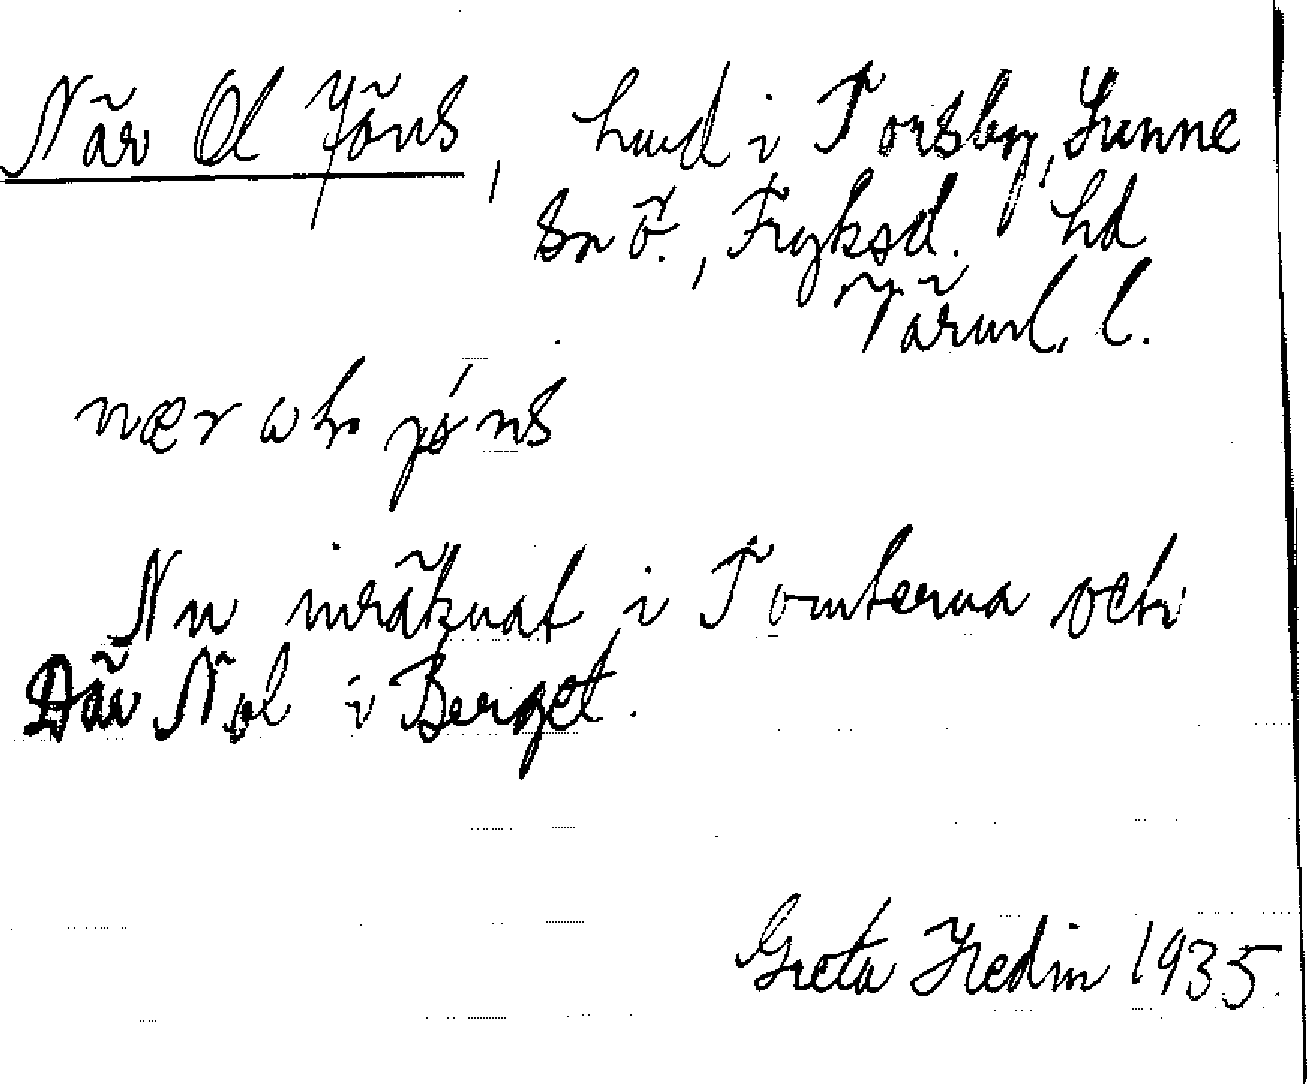 När Ol Jöns, hmd i Torsby, Sunne
sn Ö., Fryksd. hd
Värml. l.
nær
Nu inräknat i Tomterna och
Där Nol i Berget.
Greta Hedin 1935.